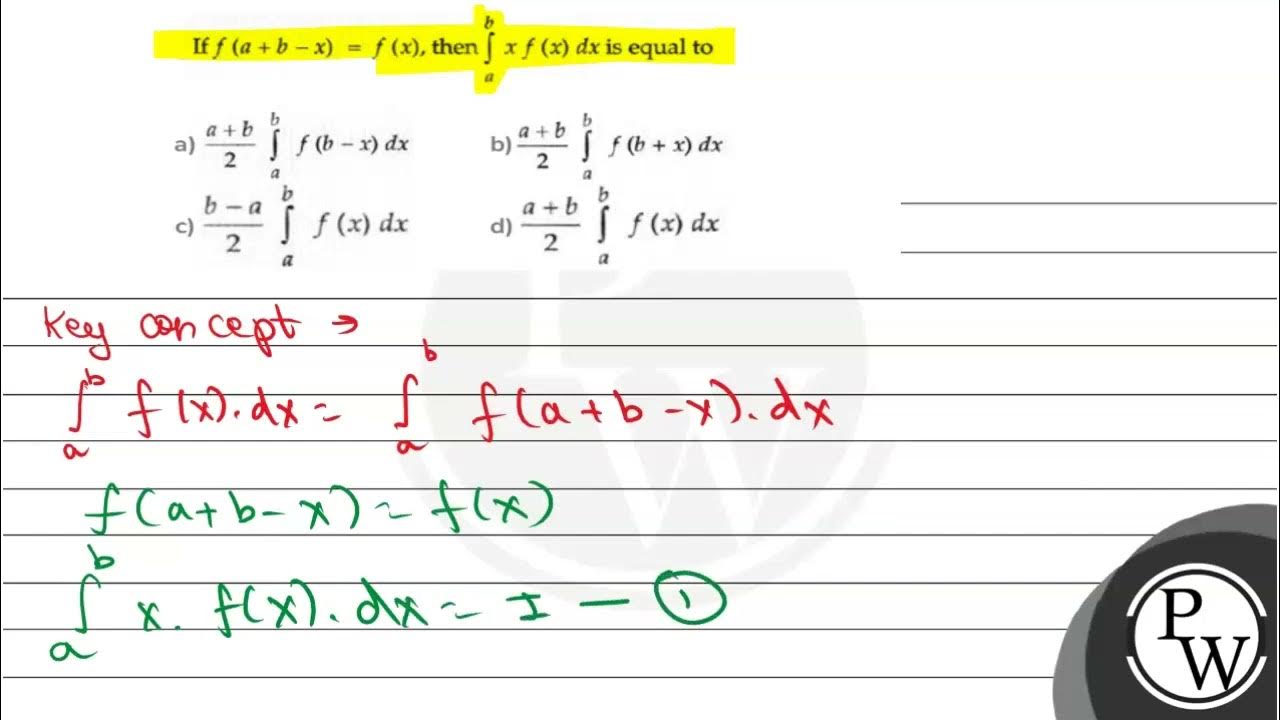 If f (a + b – x) = f (x), then ∫ₐᵇ x f (x) dx is equal to
a) (a + b)/2 ∫ₐᵇ f (b – x) dx b) (a + b)/2 ∫ₐᵇ f (b + x) dx
c) (b – a)/2 ∫ₐᵇ f (x) dx d) (a + b)/2 ∫ₐᵇ f (x) dx
Key concept →
∫ₐᵇ f(x).dx = ∫ₐᵇ f(a+b-x).dx
f(a+b-x) = f(x)
∫ₐᵇ x. f(x). dx = I — ①
P
W